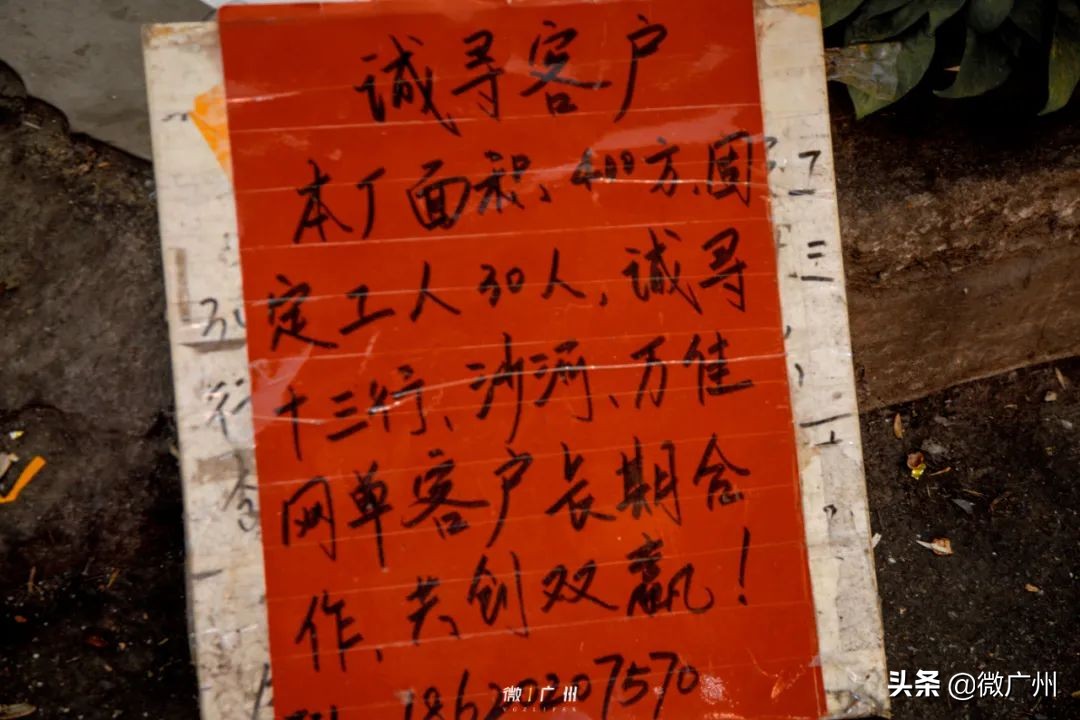 诚寻客户
本厂面积、400方、固
定工人30人，诚寻
十三行、沙河、万佳
网单客户长期合
作、共创双赢！
18620207570
微|广州
头条 @微广州